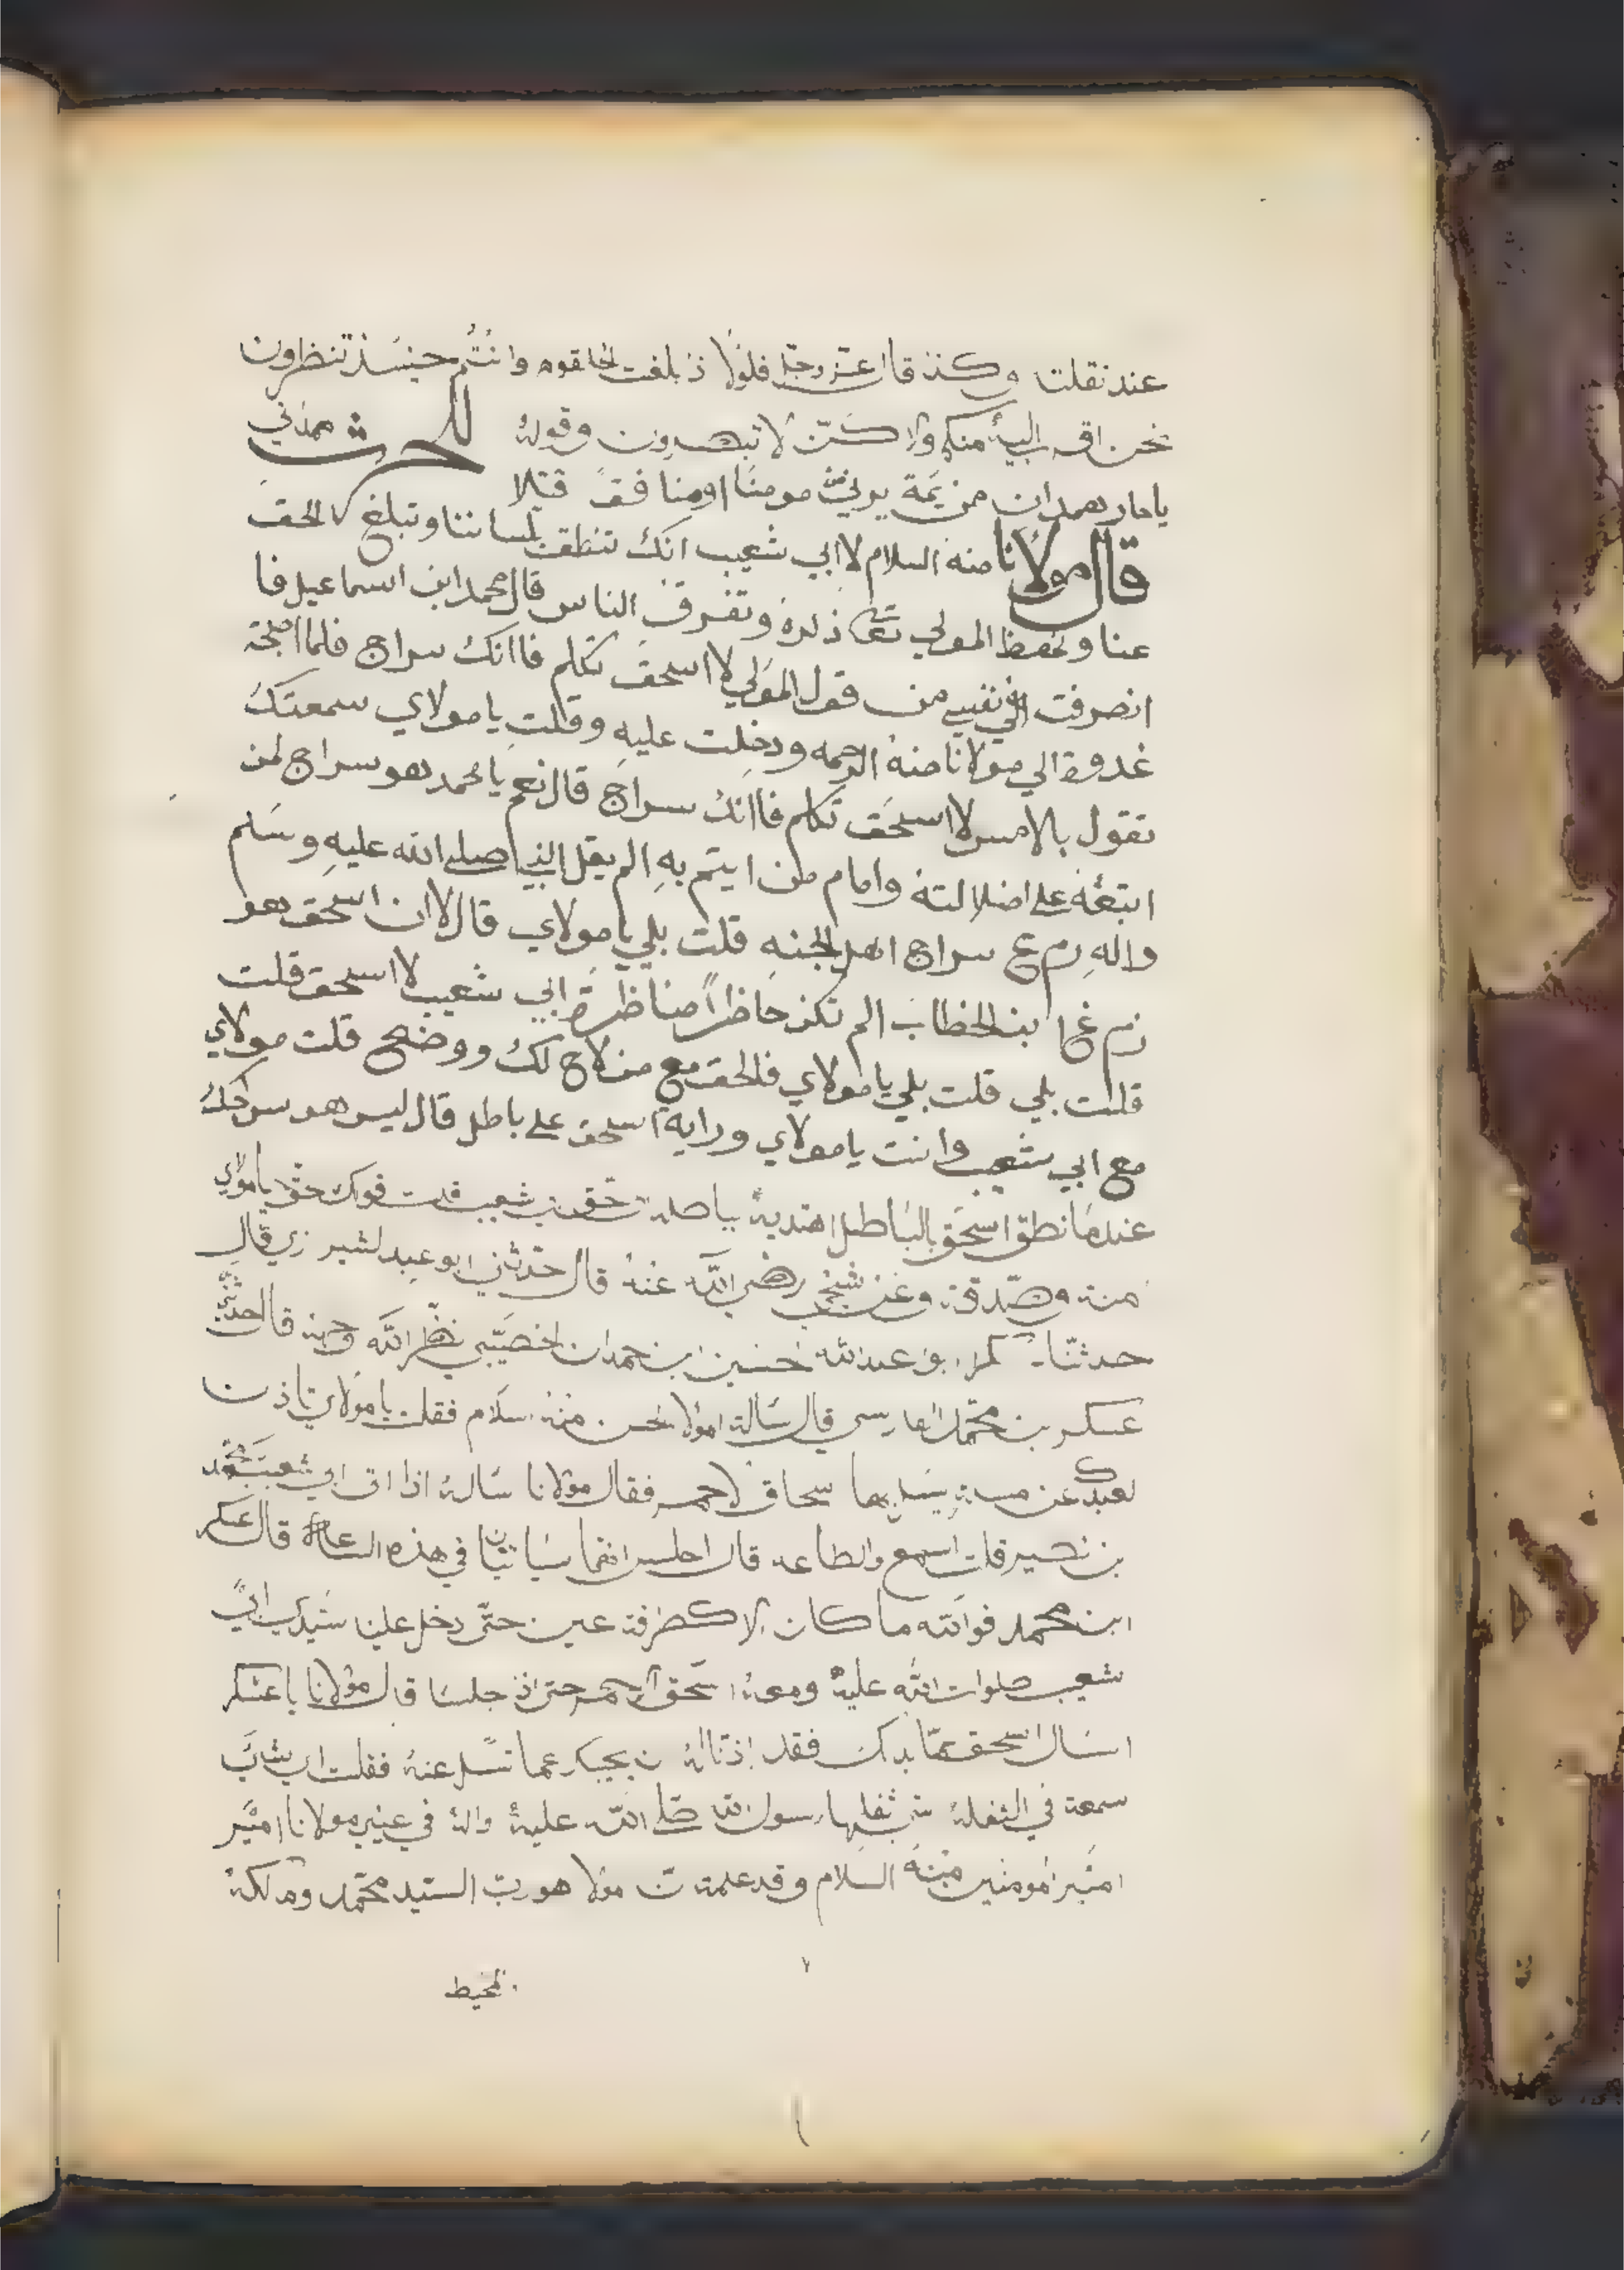 عند نقلت وكذ قال عز وجل فلولا ذ بلغت الحلقوم وانتم حينئذ تنظرون
نحن اقرب اليه منكم ولاكن لا تبصرون وقوله للحرث همذني
ياحار همدان من يمة يرني مومنا اومنافق قبلا
قال مولانا منه السلام لاابي شعيب انك تنطق بلساننا وتبلغ الحق
عنا وتحفظ المولي ذكره وتفرق الناس قال محمد ابن اسماعيل فا
انصرفت الي نفسي من قول المولي لااسحق تكلم فاانك سراج فلما
غدوة الي مولانا منه الرحمه ودخلت عليهِ وقلت يا مولاي سمعتك
تقول بالامس لااسحق تكلم فاانك سراج قال نعم يا محمد هو سراج لمن
اتبعه على اضلالته وامام من ايتم بهِ الم يقل النبي صلى الله عليهِ وسلم
والهِ سراج اهل الجنهِ قلت بلي يا مولاي قال لاان اسحق هو
بن الخطاب الم تكن حاظراً مناظرة ابي شعيب لااسحق قلت
قلت بلي قلت بلي يا مولاي فلحق مع من لاح لك ووضح قلت مولاي
مع ابي شعيب وانت يا مولاي وراية اسحق على باطل قال ليس هو
عندما نطق اسحق بالباطل اهتدية شعيب يا مولاي
منه وصدقة وعن شيخي رضي الله عنه قال حدثني ابو عبد قال
حدثنا ابو عبدالله حسين ابن حمدان الخصيبي نظر الله وجهه قال حدثني
عسكر بن محمد الفارسي قال سالة مولا الحسن منه السلام فقلت يا مولاي تاذن
لعبدك عن اسحاق لاحمر فقال مولانا ساله اذا اتى ابي شعيب محمد
بن نصير قلت السمع والطاعه قال اجلس انهما سياتيان في هذه الساعة قال عسكر
ابن محمد فوالله ما كان الا كطرفة عين حتى دخل علينا سيدي ابي
شعيب صلوات الله عليه ومعه اسحق الاحمر حتى اذ جلسا قال مولانا يا عسكر
اسال اسحق عما بدلك فقد اذنا له ن يجيبك عما تسل عنه فقلت
سمعة في التفله تفلها رسول الله صلى الله عليه واله في عينيِ مولانا امير
امير امومنين منه السلام وقد علمت ن مولا هو رب السيد محمد ومالكه
المحيط